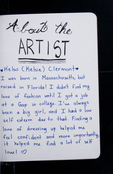 About the
ARTIST
Melai (Melvie) Clermont
I was born in Massachusetts, but
raised in Florida! I didn't find my
love of fashion until I got a job
at a Gap in college. I've always
been a big girl, and I had a low
self esteem due to that. Finding a
love of dressing up helped me
feel confident and more importantly
it helped me find a lot of self
love!